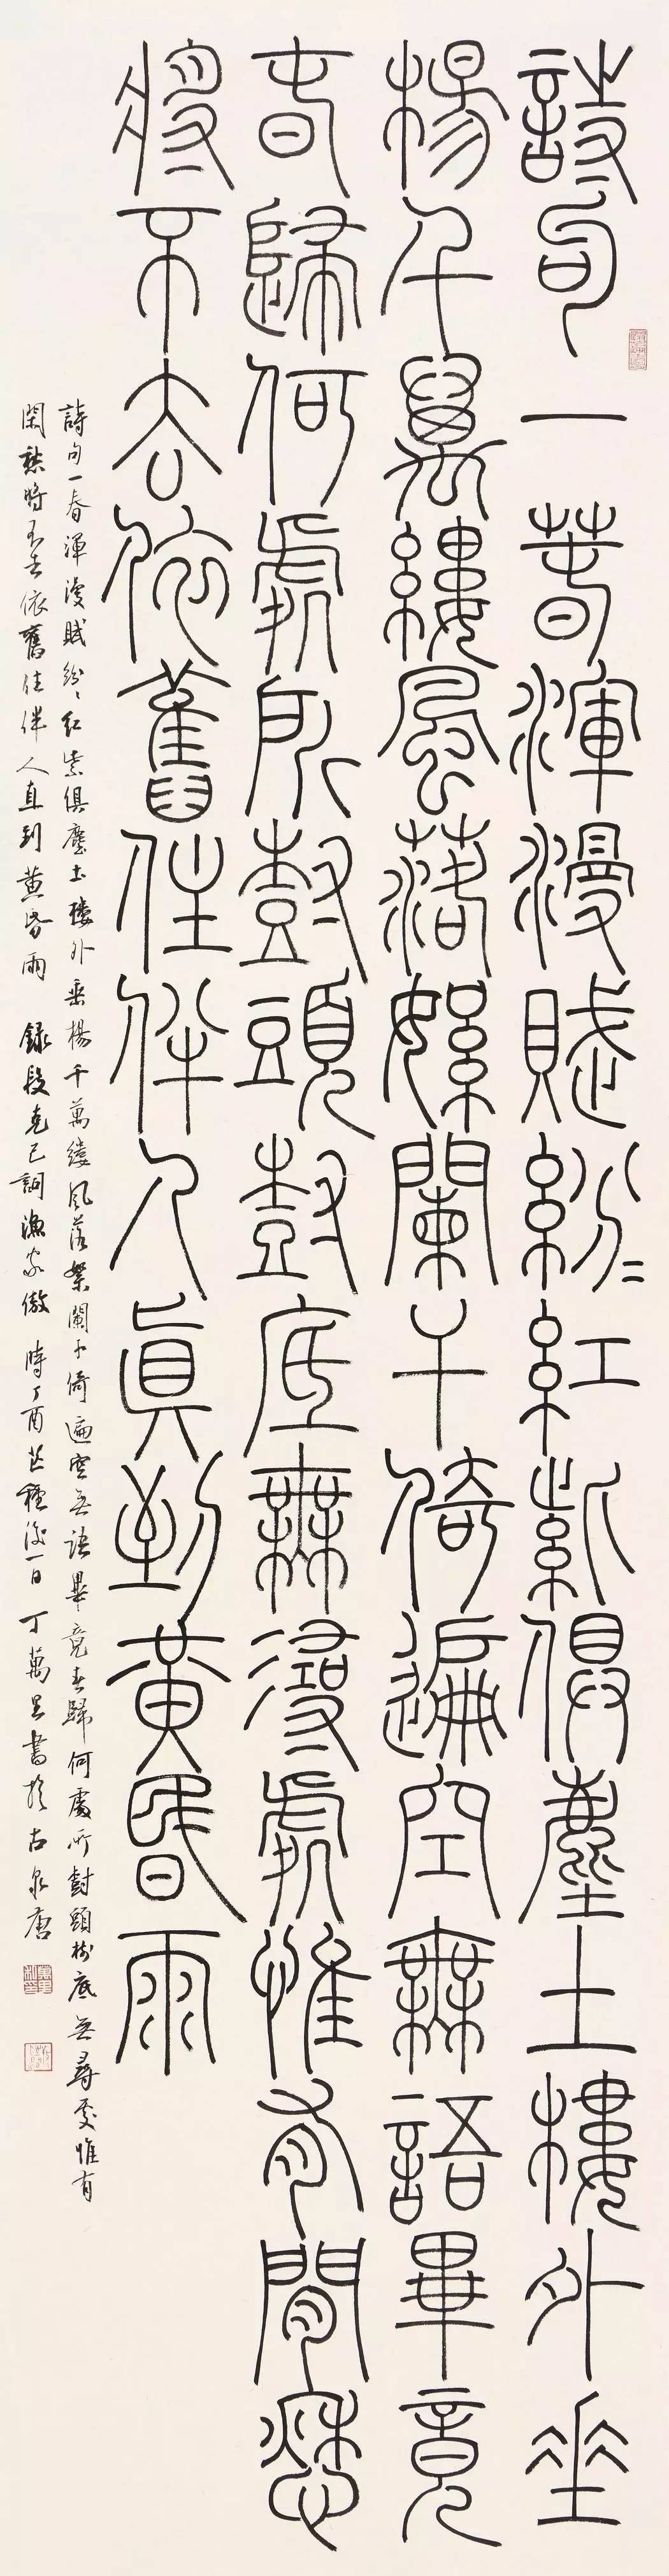 詩句一春渾漫賦紛〻紅紫俱塵土樓外垂
楊千萬縷風落絮闌干倚遍空無語畢竟
春歸何處所樹頭樹底無尋處惟有閒愁
將不去依舊住伴人直到黃昏雨
詩句一春渾漫賦紛〻紅紫俱塵土樓外垂楊千萬縷風落絮闌干倚遍空無語畢竟春歸何處所樹頭樹底無尋處惟有
閑愁將不去依舊住伴人直到黃昏雨 錄段克己詞漁家傲 時丁酉芒種後一日 丁萬里書於古泉唐